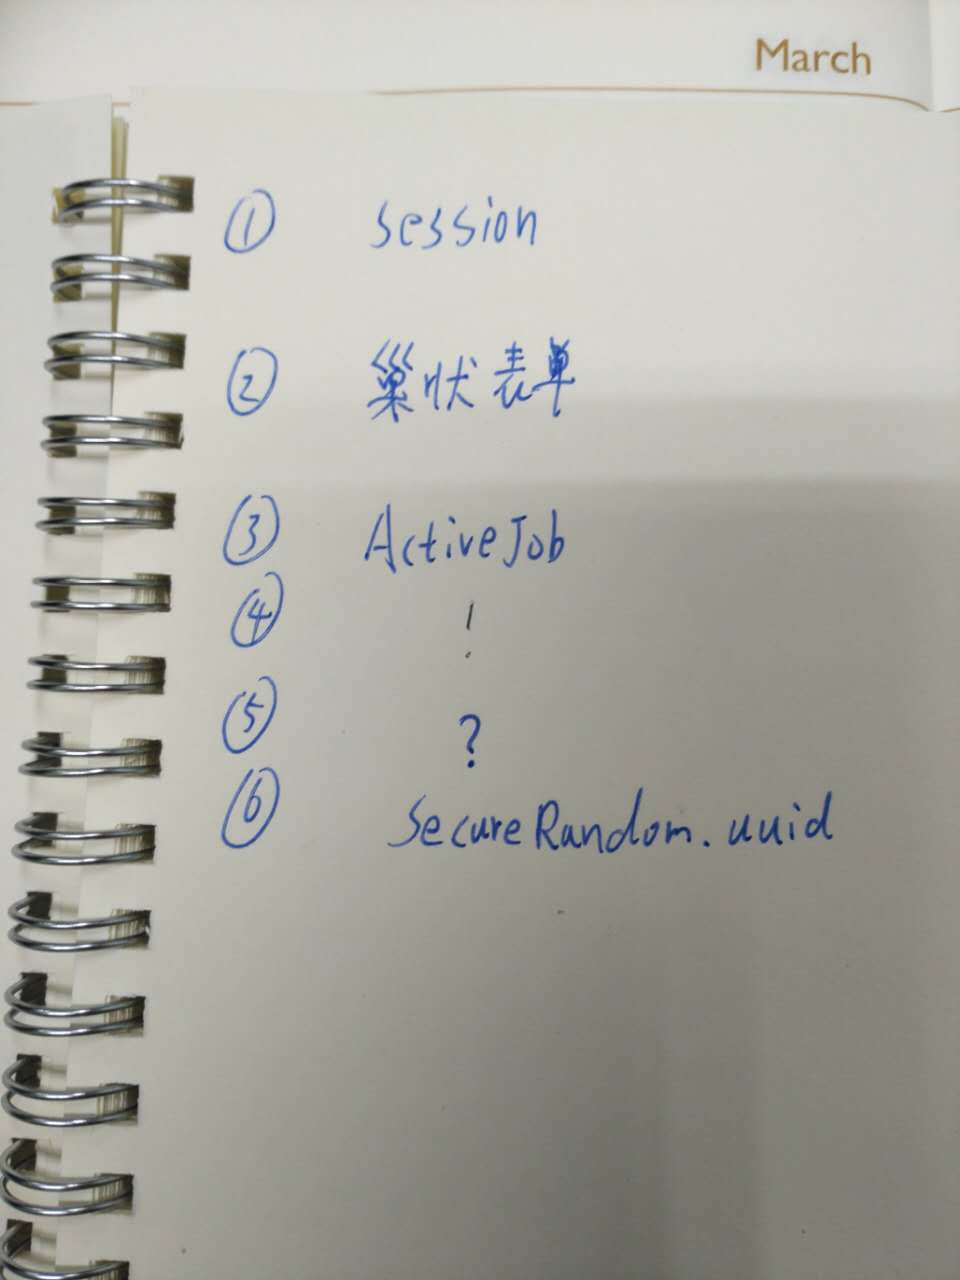 March
① session
② 巢状表单
③ ActiveJob
④ !
⑤ ?
⑥ SecureRandom.uuid